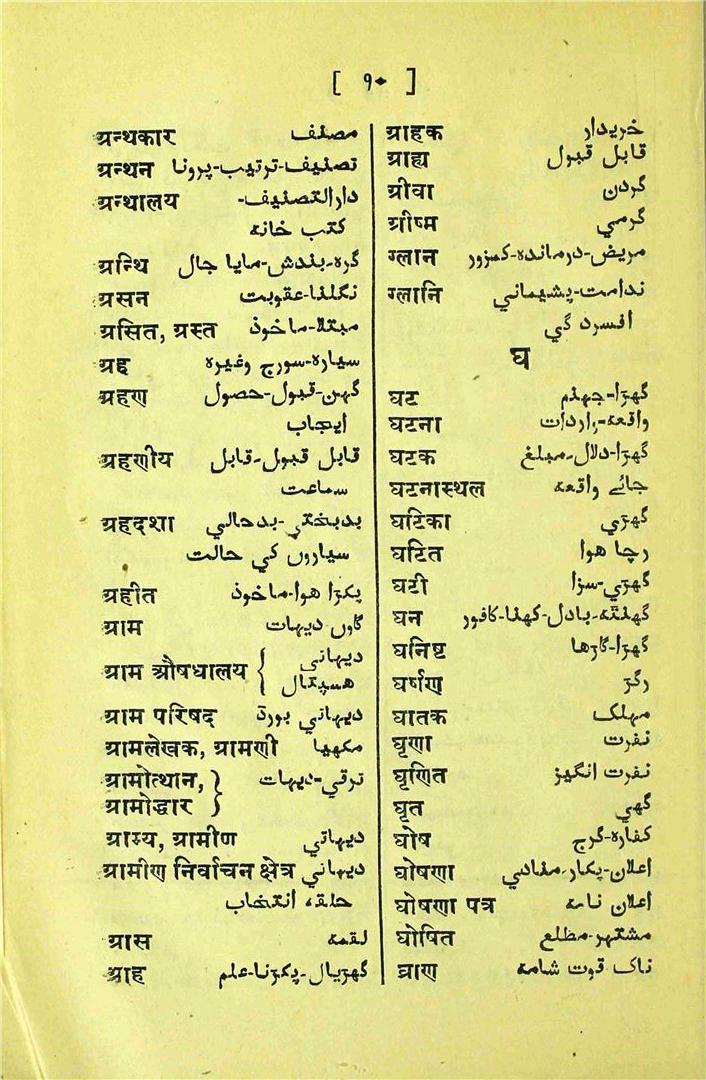 [ ९० ]
ग्रन्थकार مصنف
ग्रन्थन تصنیف-ترتیب-پرونا
ग्रन्थालय دارالتصنیف-
کتب خانہ
ग्रन्थि گرہ-بندش-مایا جال
ग्रसन نگلنا-عقوبت
ग्रसित, ग्रस्त مبتلا-ماخوذ
ग्रह سیارہ-سورج وغیرہ
ग्रहण گہن-قبول-حصول
ایجاب
ग्रहणीय قابل قبول-قابل
سماعت
ग्रहदशा بدبختی-بدحالی
سیاروں کی حالت
ग्रहीत پکڑا ہوا-ماخوذ
ग्राम گاوں دیہات
ग्राम औषधालय { دیہاتی
ہسپتال
ग्राम परिषद دیہاتی بورڈ
ग्रामलेखक, ग्रामणी مکھیا
ग्रामोत्थान, } ترقی-دیہات
ग्रामोद्धार
ग्राम्य, ग्रामीण دیہاتی
ग्रामीण निर्वाचन क्षेत्र دیہاتی
حلقہ انتخاب
ग्रास لقمہ
ग्राह گھڑیال-پکڑنا-علم
ग्राहक خریدار
ग्राह्य قابل قبول
ग्रीवा گردن
ग्रीष्म گرمی
ग्लान مریض-درماندہ-کمزور
ग्लानि ندامت-پشیمانی
افسردگی
घ
घट گھڑا-جہنم
घटना واقعہ-واردات
घटक گھڑا-دلال-مبلغ
घटनास्थल جائے واقعہ
घटिका گھڑی
घटित رچا ہوا
घटी گھڑی-سزا
घन گھنٹہ-بادل-گھنا-کافور
घनिष्ट گہرا-گاڑھا
घर्षण رگڑ
घातक مہلک
घृणा نفرت
घृणित نفرت انگیز
घृत گھی
घोष کفارہ-گرج
घोषणा اعلان-پکار-منادی
घोषणा पत्र اعلان نامہ
घोषित مشتہر-مطلع
घ्राण ناک قوت شامہ